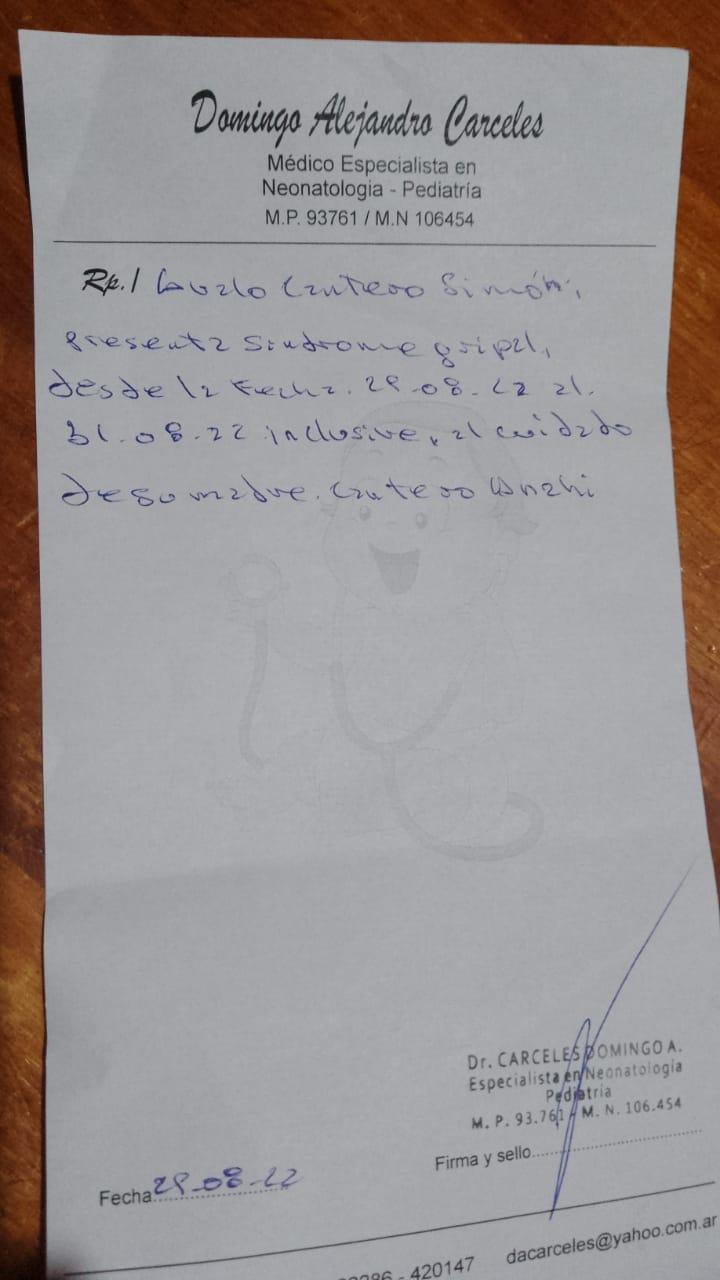 Domingo Alejandro Carceles
Médico Especialista en
Neonatologia - Pediatría
M.P. 93761 / M.N 106454
Rp./ Cantero Simón,
presenta sindrome gripal,
desde la Fecha. 29.08.22 al.
31.08.22 inclusive, al cuidado
de su madre. Cantero Anahi
Dr. CARCELES DOMINGO A.
Especialista en Neonatologia
Pediatria
M. P. 93.761 - M. N. 106.454
Firma y sello
Fecha 29-08-22
420147 dacarceles@yahoo.com.ar